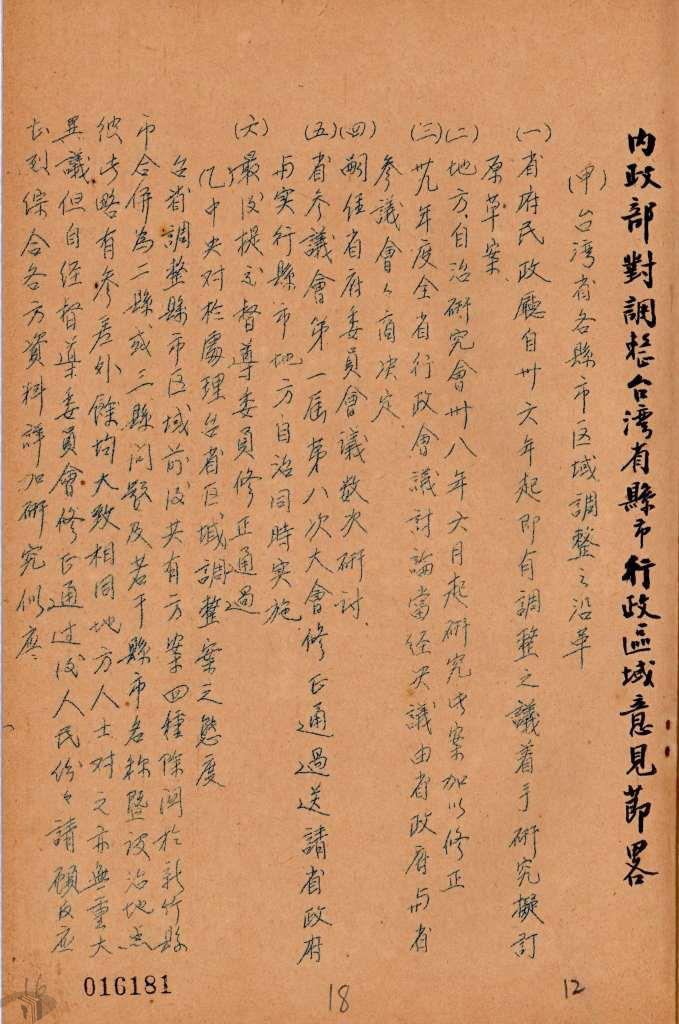 內政部對調整台湾省縣市行政區域意見節畧
(甲)台湾省各縣市区域調整之沿革
(一)省府民政廳自卅六年起即有調整之議着手研究擬訂
原草案
(二)地方自治研究會卅八年六月起研究此案加以修正
(三)卅九年度全省行政會議討論當经决議由省政府与省
參議會会商决定
(四)嗣经省府委員會議数次研討
(五)省參議會第一届第八次大會修正通過送請省政府
与实行縣市地方自治同時实施
(六)最後提交督導委員修正通過
(乙)中央对於處理台省区域調整案之態度
台省調整縣市区域前後共有方案四種除関於新竹縣
市合併為二縣或三縣问题及若干縣市名称暨设治地点
彼此略有參差外餘均大致相同地方人士对之亦無重大
異議但自经督導委員會修正通过後人民纷々請願反应
到综合各方資料詳加研究似應
016181
18
12
16